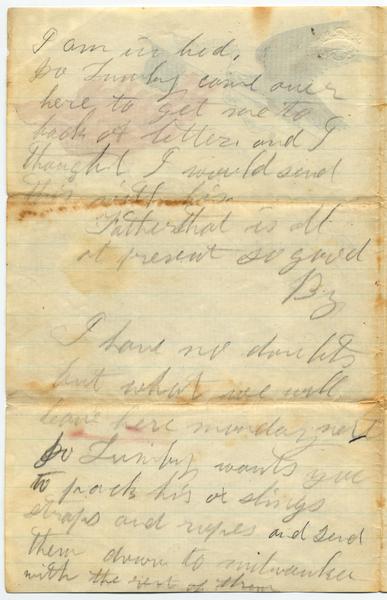 I am in bed,
Jo Lumby came over
here to get me to
back a letter. and I
thought I would send
this with his.
Father that is all
at present so good
By
I have no doubts
but what we will
leave here monday next
Jo Lumby wants you
to pack his slings
straps and ropes and send
them down to milwaukee
with the rest of them